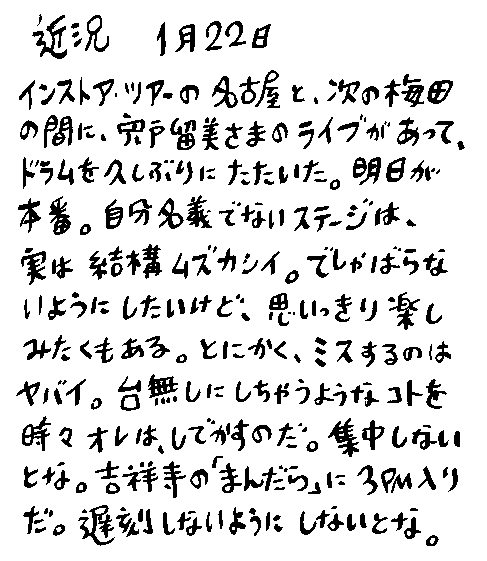 近況　1月22日
インストア・ツアーの名古屋と、次の梅田
の間に、宍戸留美さまのライブがあって、
ドラムを久しぶりにたたいた。明日が
本番。自分名義でないステージは、
実は結構ムズカシイ。でしゃばらな
いようにしたいけど、思いっきり楽し
みたくもある。とにかく、ミスするのは
ヤバイ。台無しにしちゃうようなコトを
時々オレは、しでかすのだ。集中しない
とな。吉祥寺の「まんだら」に3PM入り
だ。遅刻しないようにしないとな。